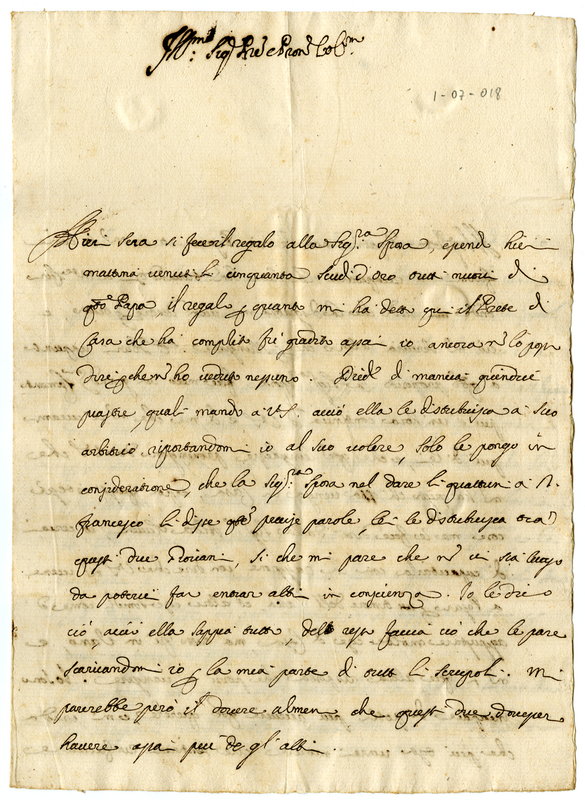 Ill.mo Sig.r P.re e Pron Col.mo
1-07-018
Hieri sera si fece il regalo alla Sig.ra Sposa, e perché hieri
mattina venuti li cinquanta Scudi d'Oro tutti nuovi di
q.to Papa il regalo, per quanto mi ha detto qui il Prete di
Casa che ha complito fu gradito assai, io ancora n. lo posso
dire perche n. ho veduto nessuno. Diede di mancia quindici
piastre, quali mando a V.S. acciò ella le distribuisca a suo
arbitrio riportandomi io al suo volere, solo le pongo in
consideratione, che la Sig.ra Sposa nel dare li quattrini a
francesco li disse q.te precise parole, le distribuisca tra
questi due, si che mi pare che n. vi sia luogo
da potervi far entrar altri in conscienza. Io le dico
ciò acciò ella sappia tutto, del resto faccia ciò che le pare
scaricandomi io per la mia parte di tutti li scrupoli. Mi
parerebbe però il dovere almeno che questi due dovessero
havere assai più de gl'altri.